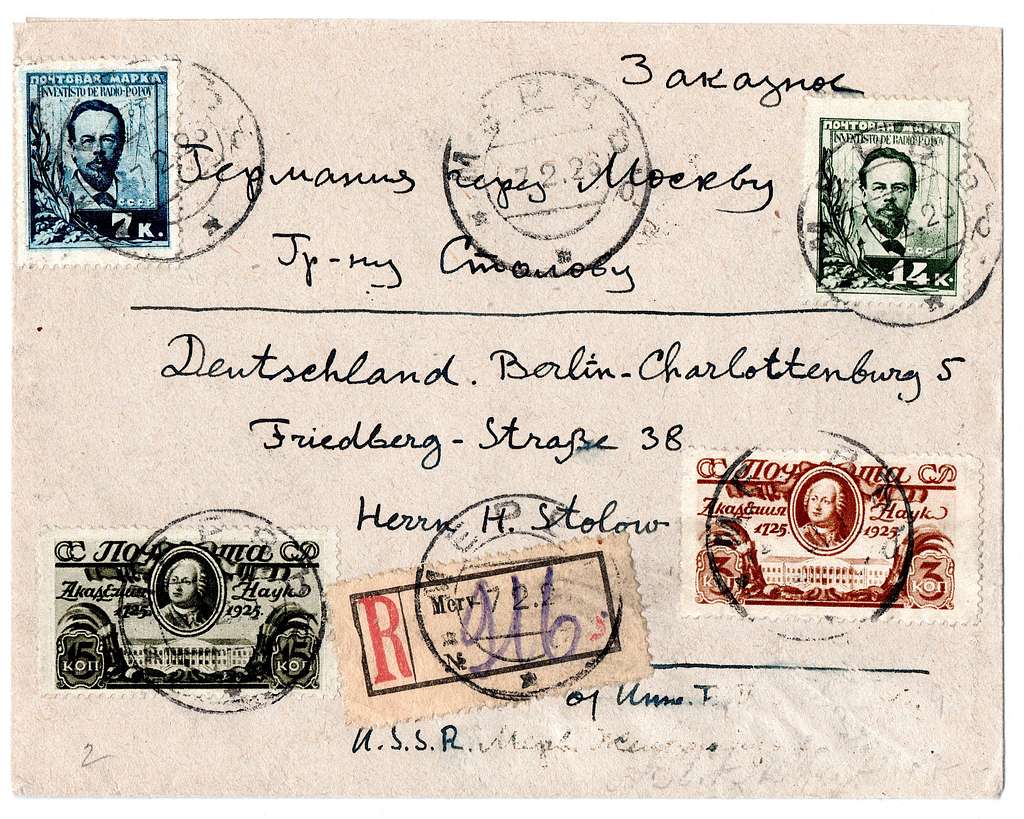 Заказное
ПОЧТОВАЯ МАРКА
INVENTISTO DE RADIO-POPOV
СССР
7 К.
ПОЧТОВАЯ МАРКА
INVENTISTO DE RADIO-POPOV
СССР
14 К.
МЕРВ
7.2.26
Германия через Москву
Гр-ну Столову
Deutschland. Berlin-Charlottenburg 5
Friedberg-Straße 38
Herrn H. Stolow
СС Почта СР
Академия Наук
1725 1925
3 КОП 3 КОП
СС Почта СР
Академия Наук
1725 1925.
15 КОП 15 КОП
МЕРВ
R Merv. 7 2.2
№ 916
от
U.S.S.R. Мерв.
2